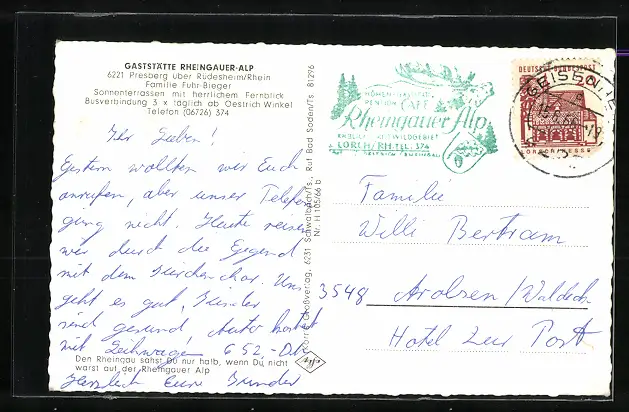 GASTSTÄTTE RHEINGAUER-ALP
6221 Presberg über Rüdesheim/Rhein
Familie Fuhr-Bieger
Sonnenterrassen mit herrlichem Fernblick
Busverbindung 3 x täglich ab Oestrich Winkel
Telefon (06726) 374
Ihr Lieben!
Gestern wollten wir Euch
anrufen, aber unser Telefon
ging nicht. Heute reisen
wir durch die Gegend
mit dem Kirchenchor. Uns
geht es gut, Kinder
sind gesund, Auto kostet
mit Leihwagen 652,- DM
Herzlich Eure
Den Rheingau sahst Du nur halb, wenn Du nicht
warst auf der Rheingauer Alp
Rud Bad Soden/Ts 81296
6231 Schwalbach/Ts.,
Nr. H 105/66 b
PENSION CAFÉ
Rheingauer Alp
LORCH/RH. TEL. 374
DEUTSCHE BUNDESPOST
GEISENHEIM
LORSCH/HESSEN
Familie
Willi Bertram
3548 Arolsen/Waldeck
Hotel zur Post